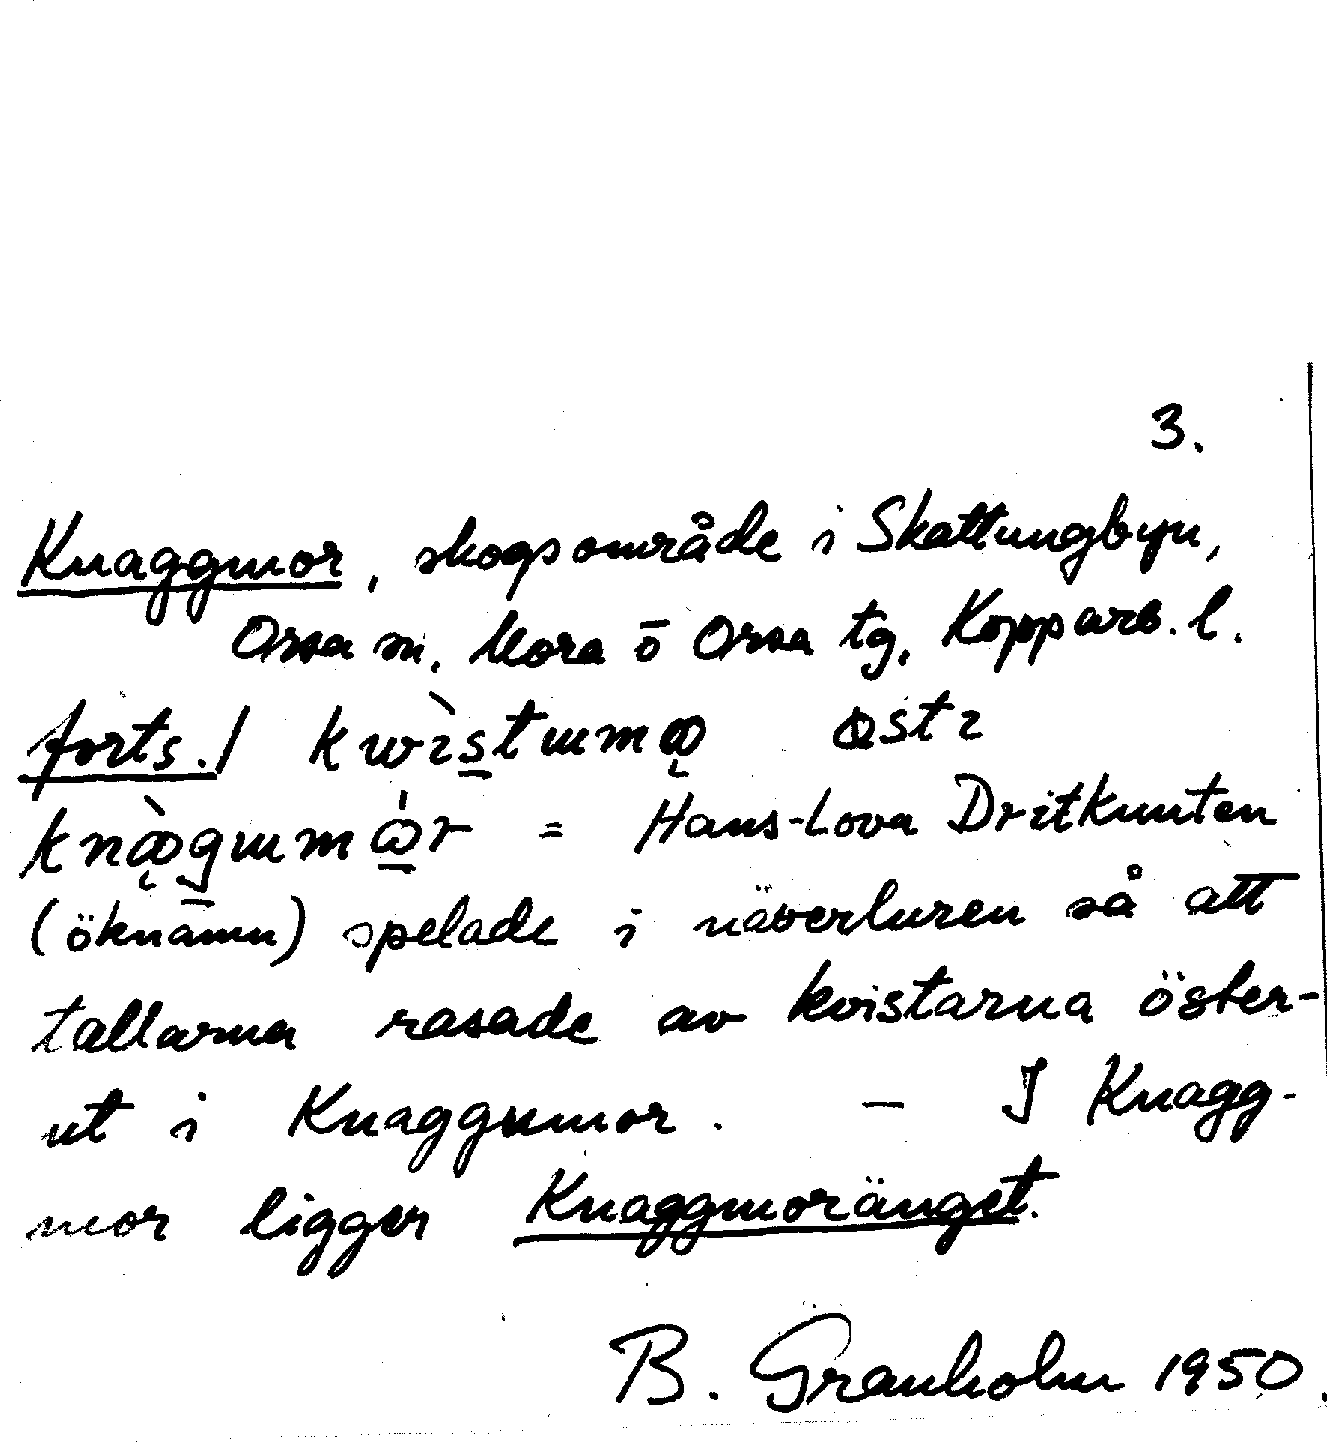 3.
Knaggmor, skogsområde i Skattungbyn,
Orsa sn. Mora o Orsa tg, Kopparb. l.
forts./
= Hans-Lova Dritkunten
(öknamn) spelade i näverluren så att
tallarna rasade av kvistarna öster-
ut i Knaggumor. – I Knagg-
mor ligger Knaggmoränget.
B. Granholm 1950.